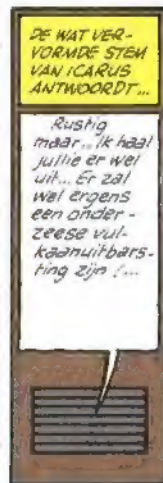 DE WAT VER-
VORMDE STEM
VAN ICARUS
ANTWOORDT...
Rustig
maar.. Ik haal
jullie er wel
uit... Er zal
wel ergens
een onder-
zeese vul-
kaanuitbars-
ting zijn !...